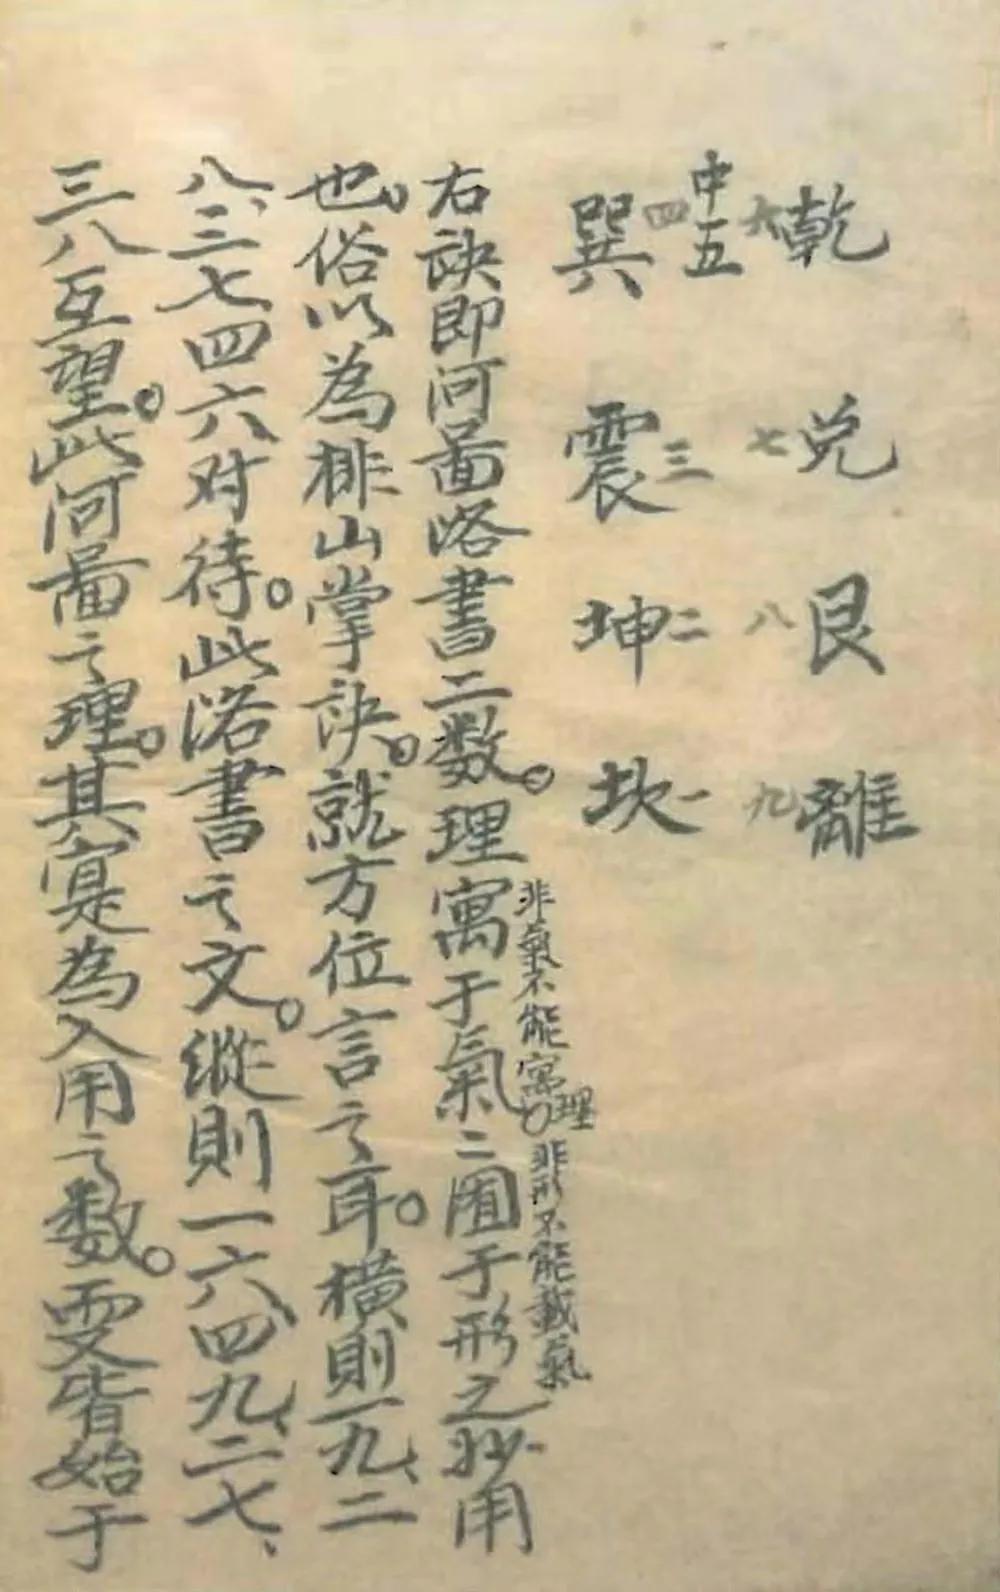 乾六 兑七 艮八 離九
中五
巽四 震三 坤二 坎一
右訣即河啚洛書二数。理寓于氣二囿于形之妙用
非氣不能寓理、非形不能載氣
也。俗以為排山掌訣。就方位言之耳。橫則一九、二
八、三七四六对待。此洛書之文。縱則一六、四九、二七、
三八互望。此河啚之理。其寔為入用之数。要皆始于